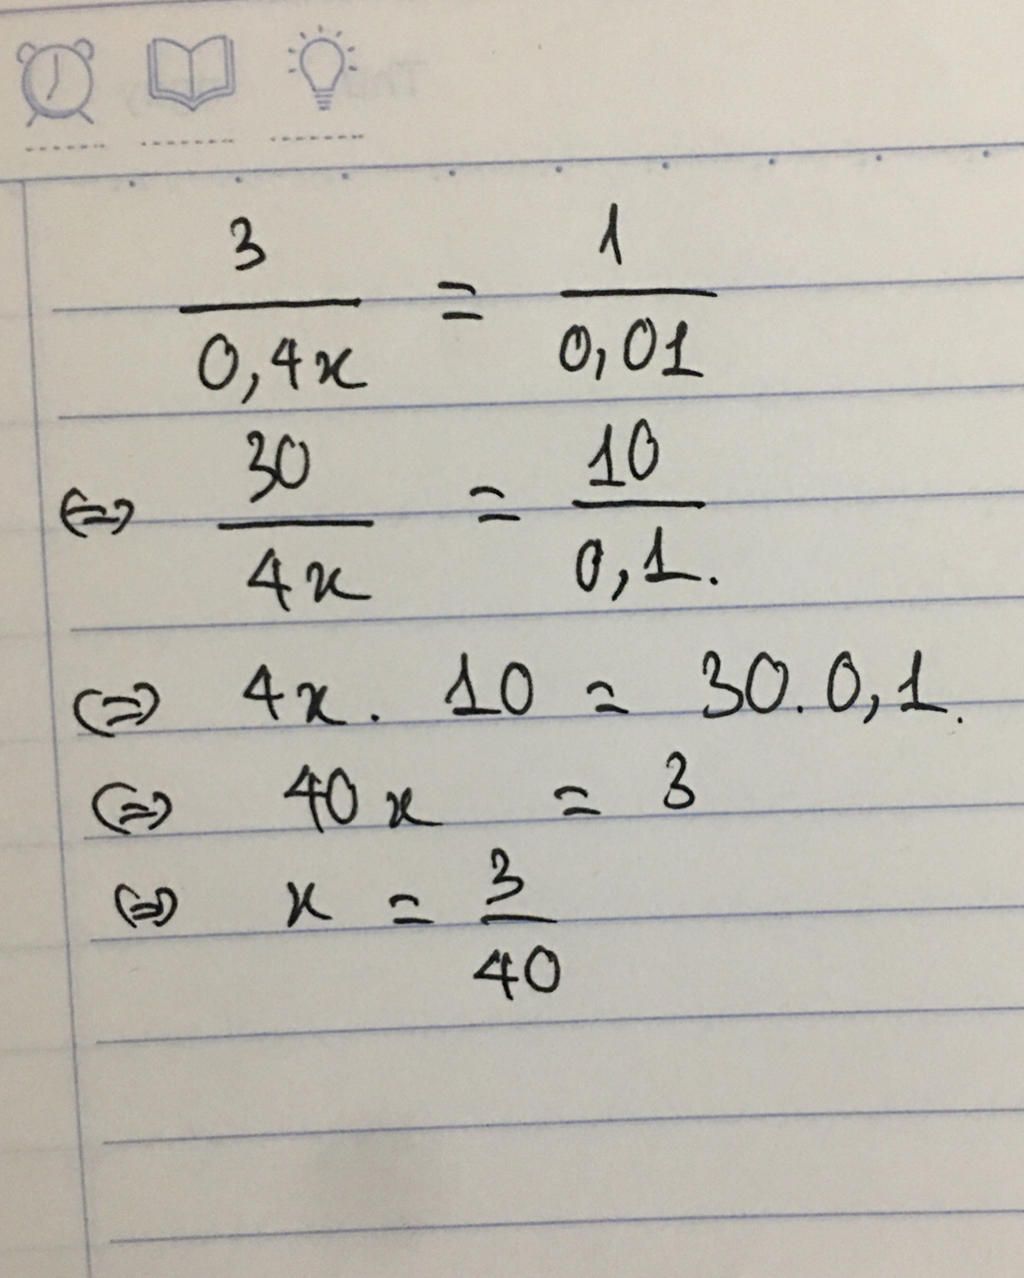 3/0,4x = 1/0,01
⇔ 30/4x = 10/0,1.
⇔ 4x . 10 = 30.0,1.
⇔ 40x = 3
⇔ x = 3/40